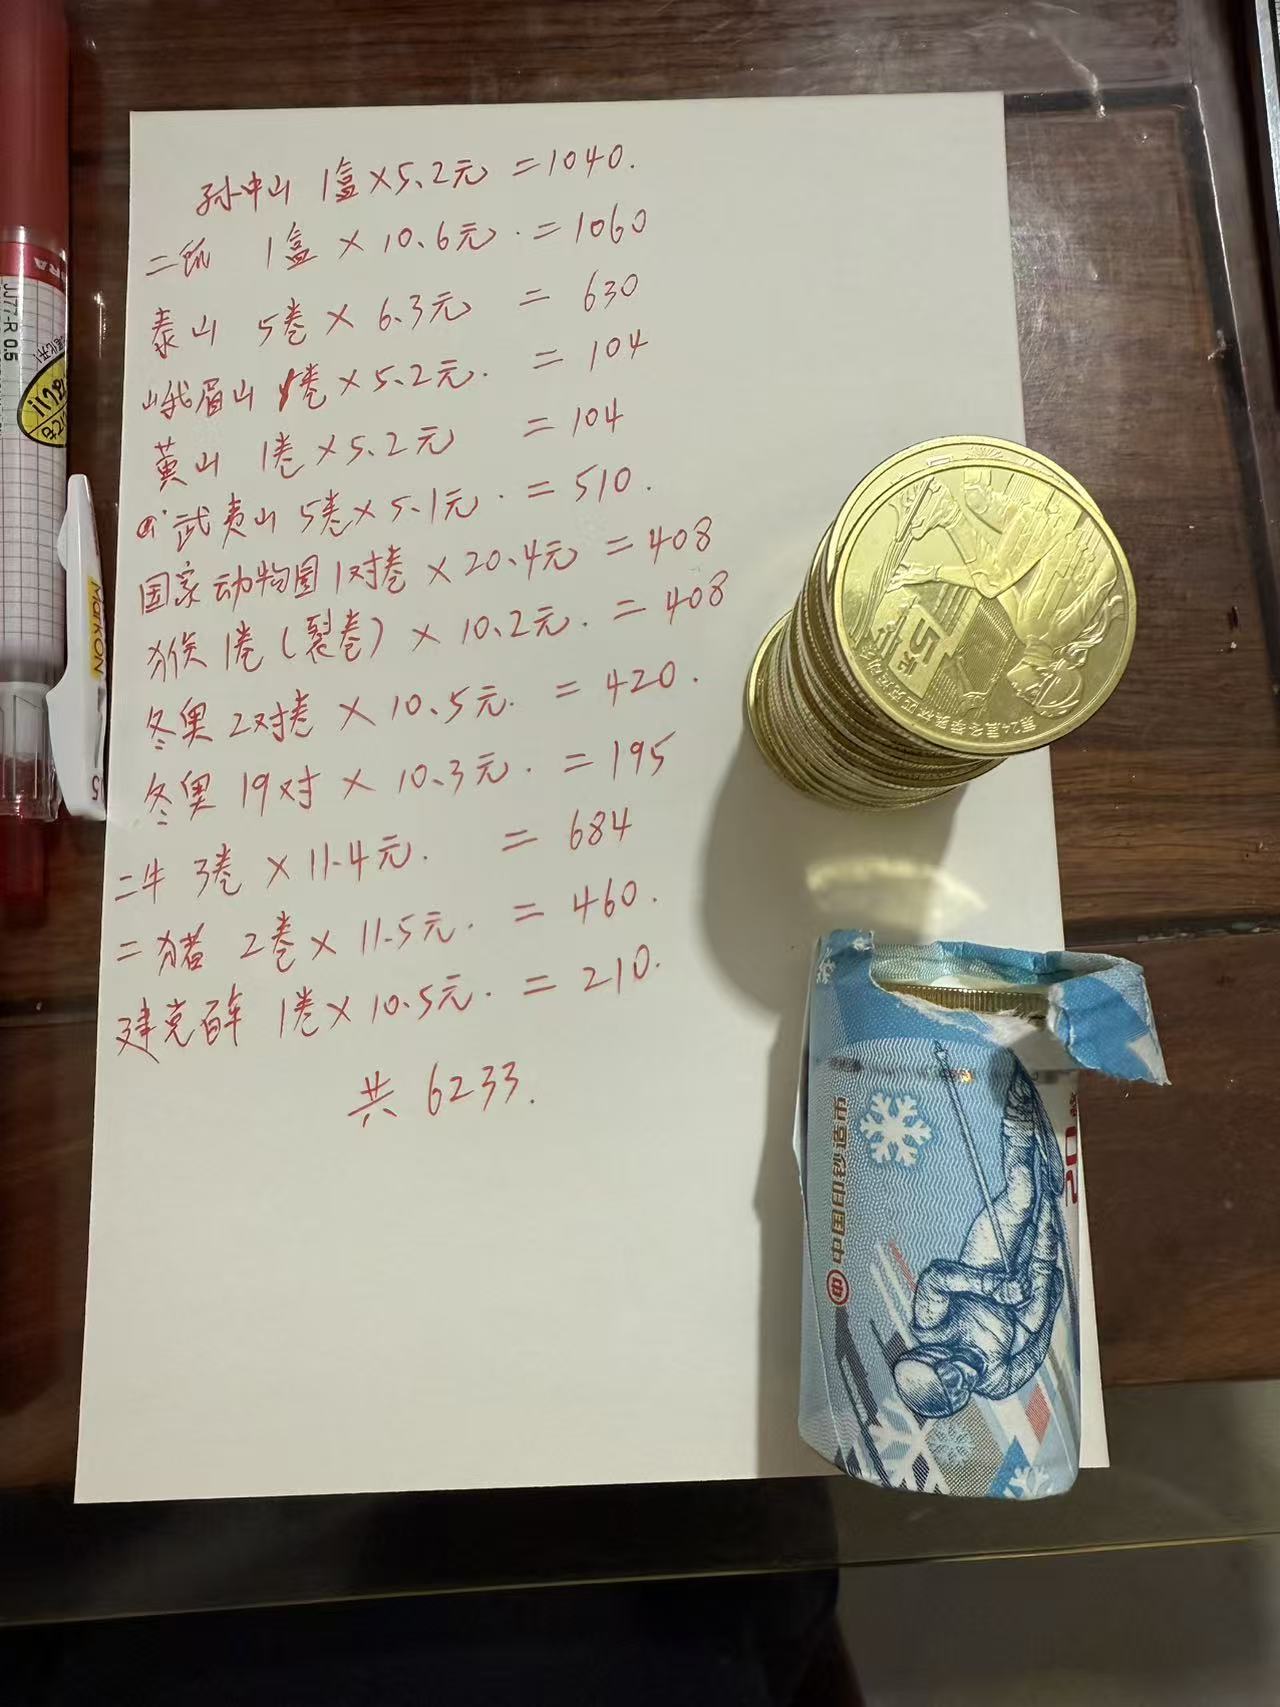 孙中山 1盒×5.2元 =1040.
二鼠 1盒 × 10.6元. =1060
泰山 5卷 × 6.3元 = 630
峨眉山 1卷×5.2元. = 104
黄山 1卷×5.2元 = 104
武夷山 5卷×5.1元. = 510.
国家动物园 1对卷 × 20.4元 = 408
猴 1卷(裂卷) × 10.2元. = 408
冬奥 2对卷 × 10.5元. = 420.
冬奥 19对 × 10.3元. = 195
二牛 3卷 × 11.4元. = 684
二猪 2卷 × 11.5元. = 460.
建党百年 1卷×10.5元. = 210.
共 6233.
5元
中国印钞造币
20
JJ77-R 0.5
Markon
5